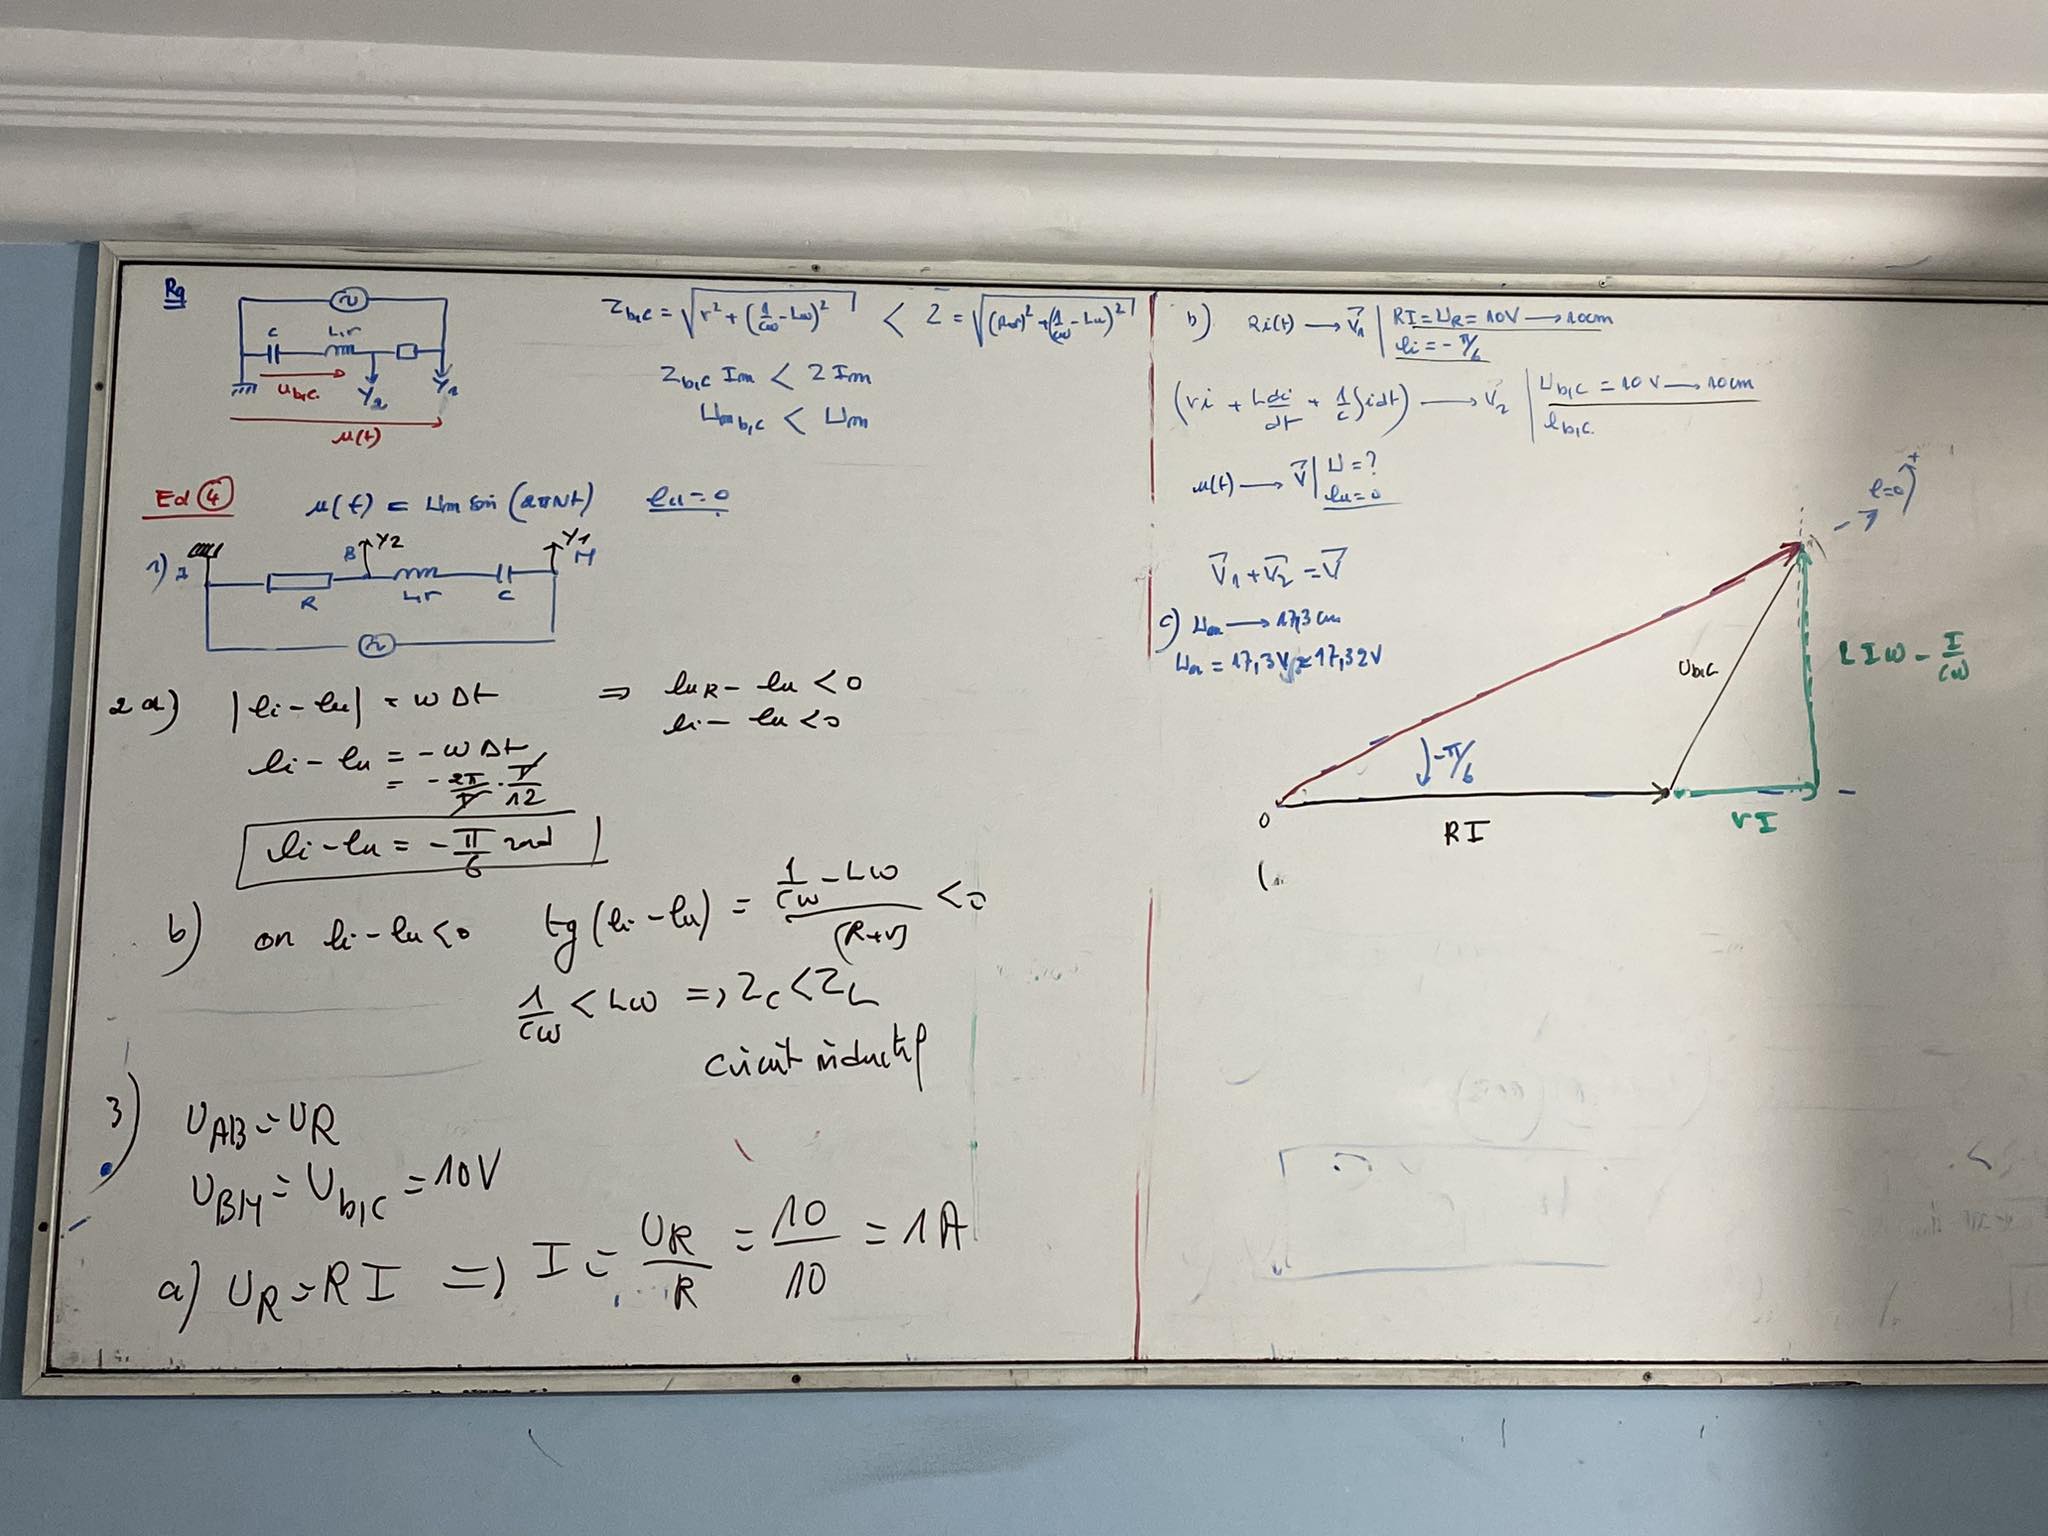 Rq
C
L,r
u_b,c
Y2
Y1
u(t)
Z_b,c = √(r² + (1/Cω - Lω)²) < Z = √((R+r)² + (1/Cω - Lω)²)
Z_b,c Im < Z Im
Um_b,c < Um
Ed ④ u(t) = Um sin (2πNt) φu = 0
1)
B
Y2
Y1
M
R
L,r
C
2 a) |φi - φu| = ω Δt ⇒ φuR - φu < 0
φi - φu < 0
φi - φu = - ω Δt
= - 2π/T · T/12
φi - φu = - π/6 rad
b) on φi - φu < 0 tg (φi - φu) = (1/Cω - Lω)/(R+r) < 0
1/Cω < Lω => Zc < ZL
circuit inductif
3) U_AB = UR
U_BM = U_b,c = 10V
a) UR = R I => I = UR/R = 10/10 = 1A
b) Ri(t) → V⃗1 | RI = UR = 10V → 10cm
φi = - π/6
(ri + L di/dt + 1/C ∫idt) → V⃗2 | U_b,c = 10V → 10cm
φb,c
u(t) → V⃗ | U = ?
φu = 0
V⃗1 + V⃗2 = V⃗
c) → 17,3 cm
= 17,3V ≈ 17,32V
φ=0
+
U_b,c
LIω - I/Cω
-π/6
O
RI
rI